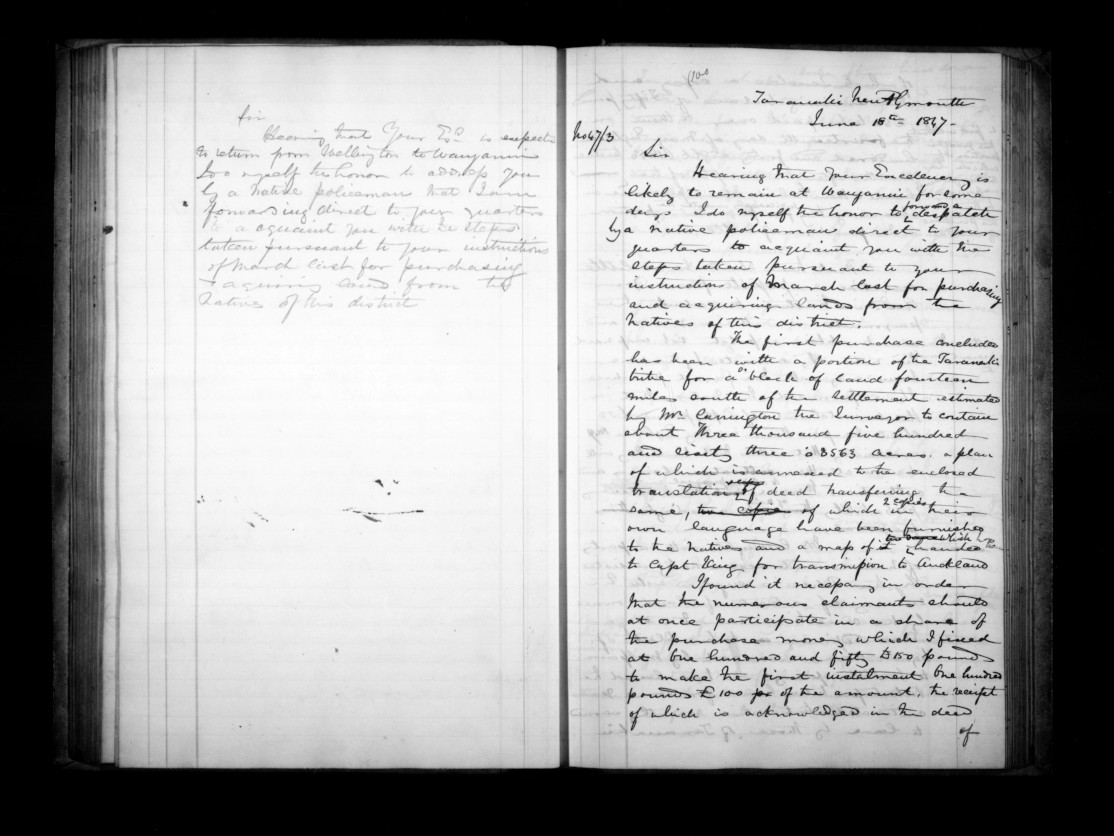 Sir
Hearing that Your Ex. is expected
to return from Wellington to Wanganui
I do myself the honor to address you
by a Native policeman that I am
forwarding direct to your quarters
to aquaint you with the steps
taken pursuant to your instructions
of March last for purchasing
aquiring land from the
Natives of this district
Taranaki New Plymouth
June 18th 1847-
No 47/3
Sir
Hearing that Your Excellency is
likely to remain at Wanganui for some
days I do myself the honor to forward a despatch
by a native policeman direct to your
quarters to acquaint you with the
steps taken pursuant to your
instructions of March last for purchasing
and acquiring lands from the
Natives of this district.
The first purchase concluded
has been with a portion of the Taranaki
tribe for a block of land fourteen
miles south of the settlement estimated
by Mr Carrington the Surveyor to contain
about Three thousand five hundred
and sixty three 3563 acres. a plan
of which is annexed to the enclosed
translation of deed transferring the
same, two copies of which 2 copies in their
own language have been furnished
to the Natives and a map of it which handed
to Capt King for transmission to Auckland
I found it necessary in order
that the numerous claimants should
at once participate in a share of
the purchase money which I fixed
at One hundred and fifty £150 pounds
to make the first instalment One hundred
pounds £100 of the amount, the receipt
of which is acknowledged in the deed
of